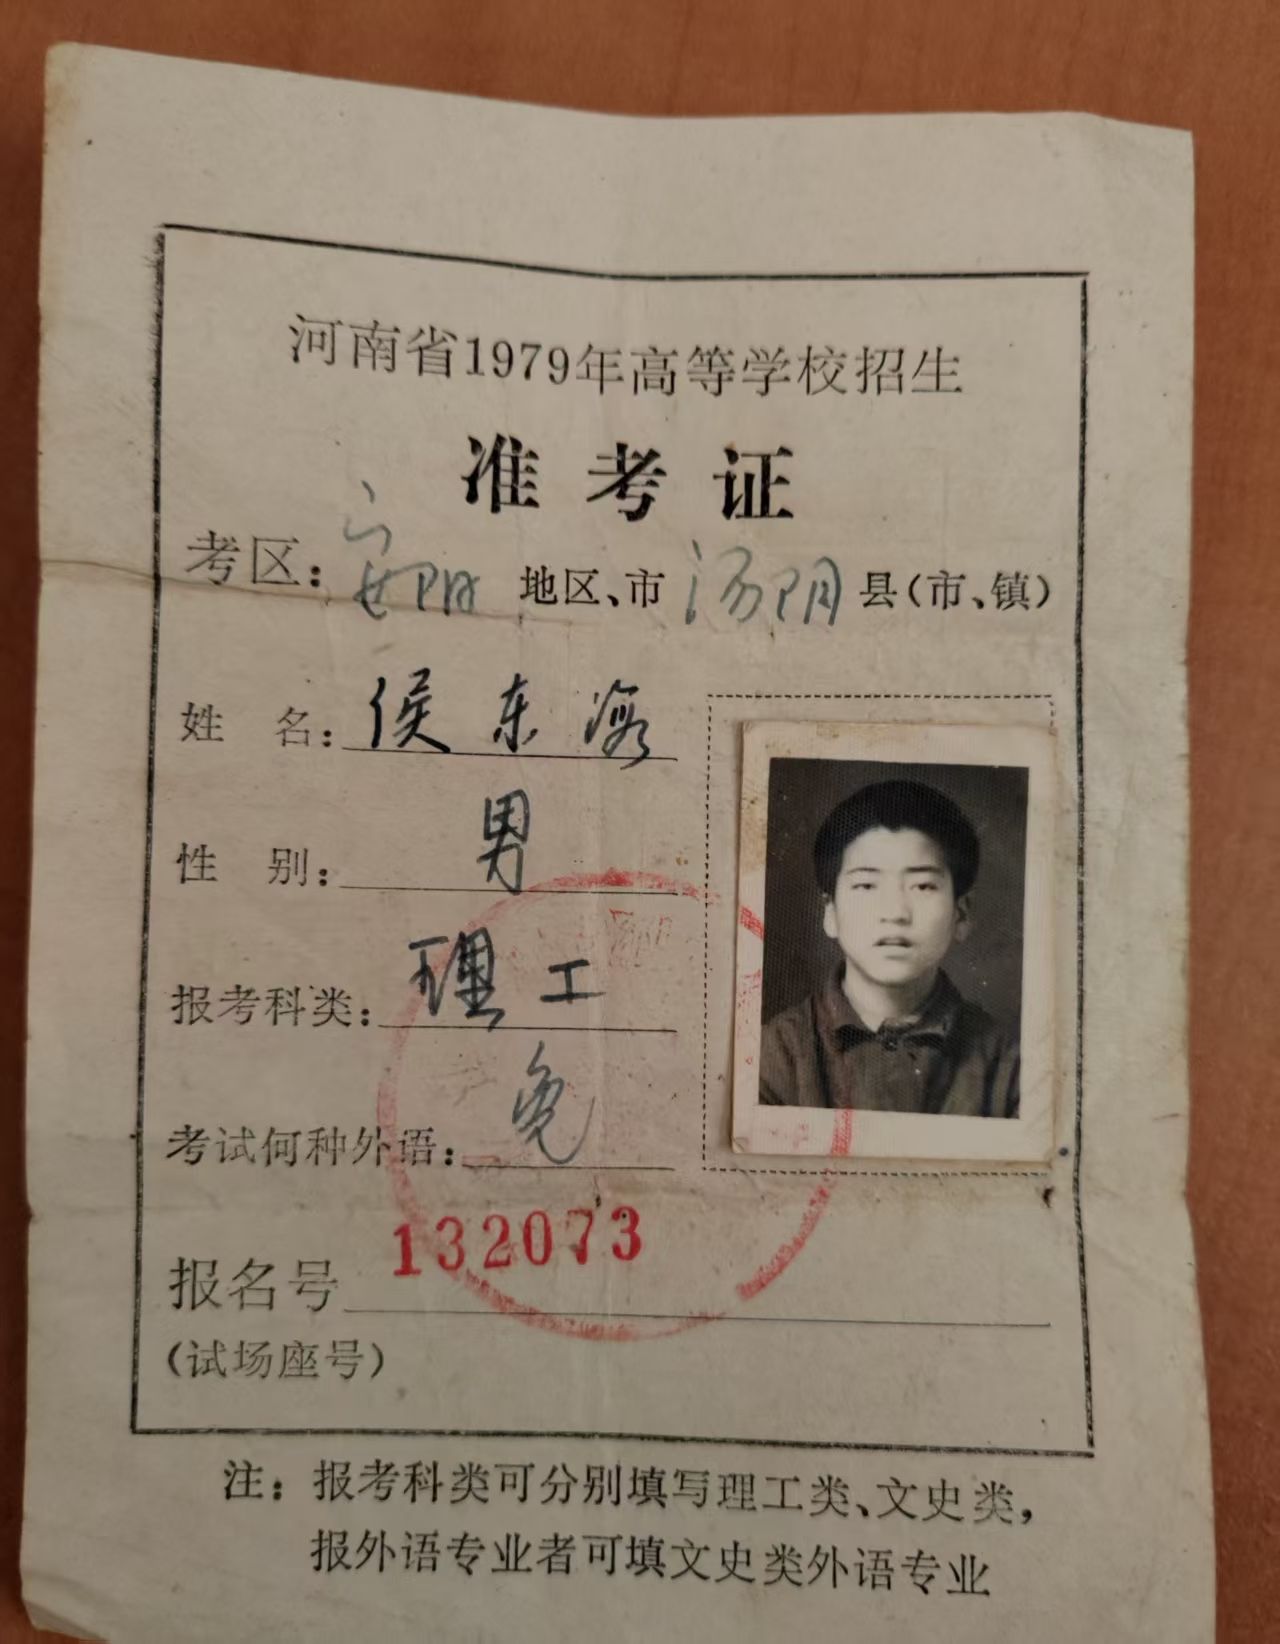 河南省1979年高等学校招生
准考证
考区：安阳 地区、市 汤阴 县（市、镇）
姓 名：侯东海
性 别：男
报考科类：理工
考试何种外语：免
报名号 132073
（试场座号）
注：报考科类可分别填写理工类、文史类，
报外语专业者可填文史类外语专业